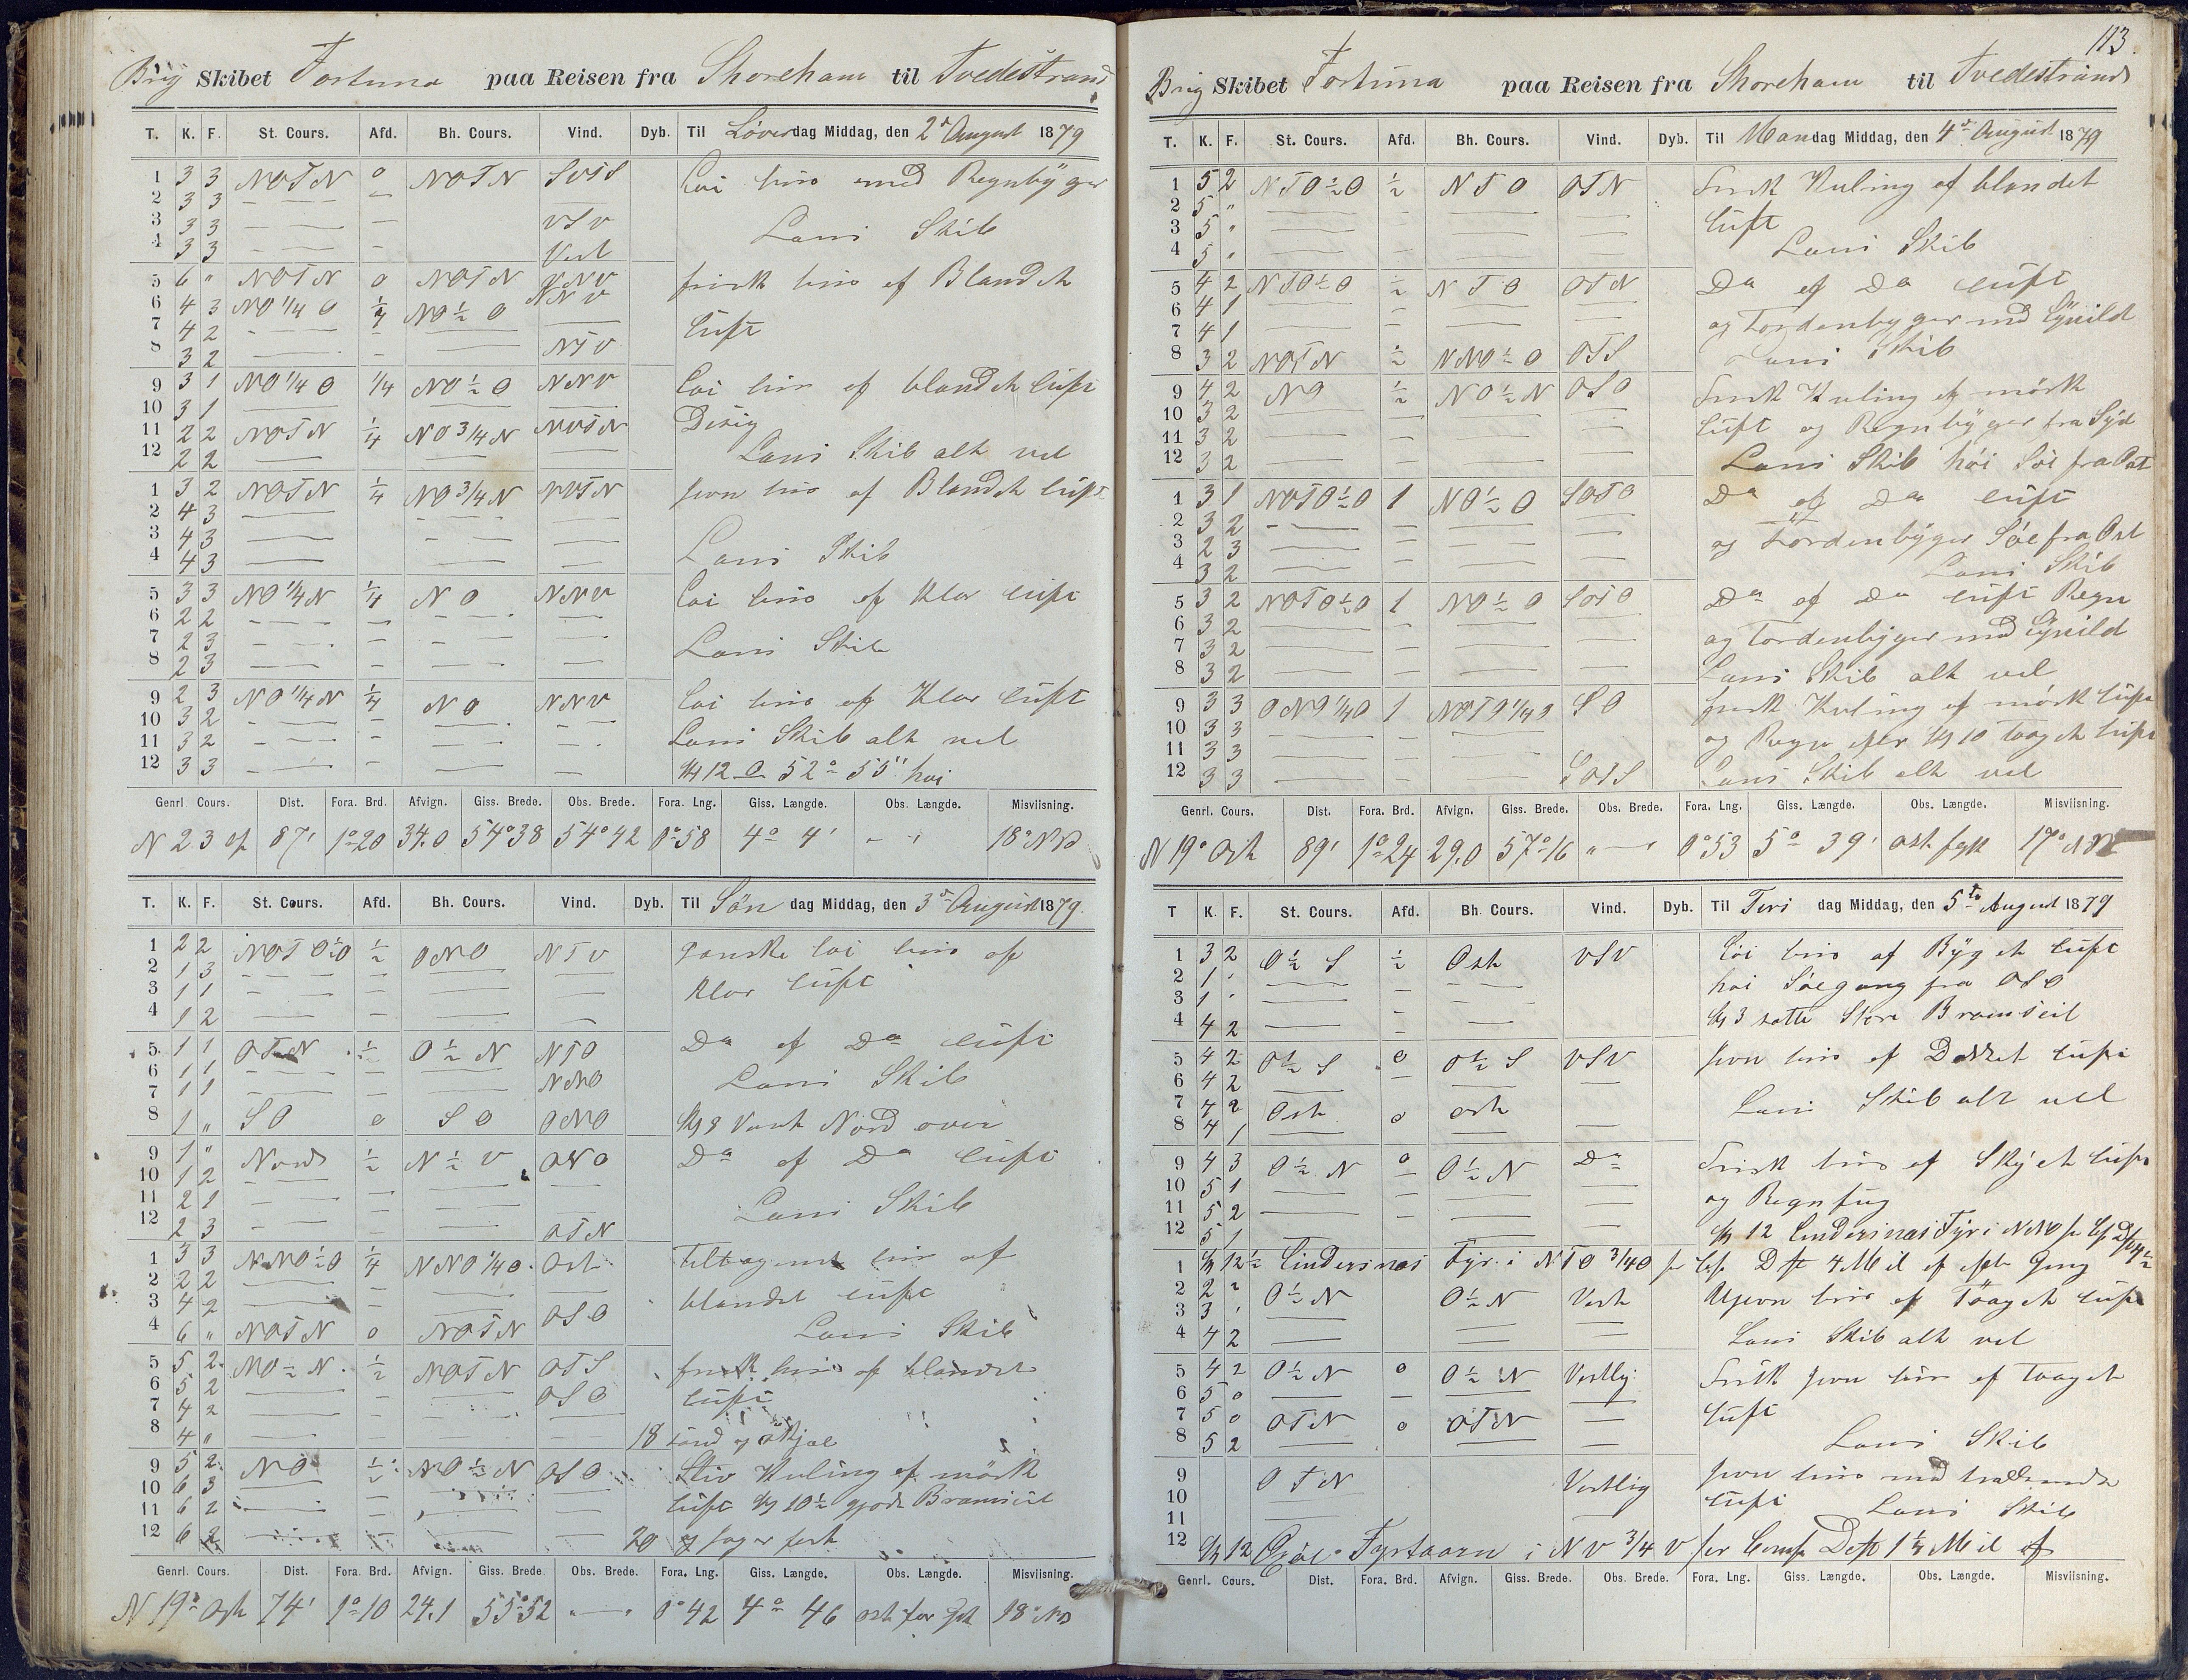 Brig Skibet Fortuna paa Reisen fra Shoreham til Tvedestrand
T. K. F. St. Cours. Afd. Bh. Cours. Vind. Dyb. Til Løverdag Middag, den 2d August 1879
1 3 3 NOTN 0 NOTN SVTS Loi bris med Regnbyger
2 3 3
3 3 3 VSV Lens Skib
4 3 3 Vest
5 6 " NOTN 0 NOTN VNV frisk bris og Blandet
6 4 3 NO 1/4 O 1/4 NO 1/2 O NNV
7 4 2 luft
8 3 2 NTV
9 3 1 NO 1/4 O 1/4 NO 1/2 O NNV loi bris og blandet luft
10 3 1 Disig
11 2 2 NOTN 1/4 NO 3/4 N NVTN
12 2 2 Lens Skib alt vel
1 3 2 NOTN 1/4 NO 3/4 N NVTN jevn bris af Blandet luft
2 4 3
3 4 3
4 4 3 Lens Skib
5 3 3 NO 1/4 N 1/4 NO NNV loi bris og klar luft
6 2 2
7 2 3 Lens Skib
8 2 3
9 2 3 NO 1/4 N 1/4 NO NNV loi bris og Klar luft
10 3 2
11 3 2 Lens Skib alt vel
12 3 3 Kl 12 52° 55" hoi
Genrl Cours. Dist. Fora. Brd. Afvign. Giss. Brede. Obs. Brede. Fora. Lng. Giss. Længde. Obs. Længde. Misviisning.
N 23 og 87' 1° 20 34.0 54° 38 54° 42 0° 58 4° 4' 18° NV
T. K. F. St. Cours. Afd. Bh. Cours. Vind. Dyb. Til Søn dag Middag, den 3d August 1879.
1 2 2 NOTO 1/2 O 1/2 ONO NTV ganske loi bris og
2 1 3
3 1 1 klar luft
4 1 2
5 1 1 OTN 1/2 O 1/2 N NTO Do og Do luft
6 1 1 NNO
7 1 1 Lens Skib
8 1 " SO 0 SO ONO Kl 8 Vent Nord over
9 1 " Nord 1/2 N 1/2 V ONO Do og Do luft
10 1 2
11 2 1 Lens Skib
12 2 3 OTN
1 3 3 NNO 1/2 O 1/4 NNO 1/4 O Ost tiltagende bris af
2 2 2
3 4 2 OSO blandet luft
4 6 " NOTN 0 NOTN Lens Skib
5 5 2 NO 1/2 N 1/2 NOTN OTS frisk bris og blandet
6 5 2 OSO
7 4 2 luft
8 4 " 18 sand og skjæl
9 5 2 NO 1/2 NO 1/2 N OSO Stiv Kuling og mörk
10 6 3
11 6 2 luft Kl 10 1/2 gjorde Bramseil
12 6 2 20 og Jager fast
Genrl. Cours. Dist. Fora. Brd. Afvign. Giss. Brede Obs. Brede. Fora. Lng. Giss. Længde. Obs. Længde. Misviisning.
N 19° Ost 74' 1° 10 24.1 55° 52 " 0° 42 4° 46 ost for 18° NV
113.
Brig Skibet Fortuna paa Reisen fra Shoreham til Tvedestrand
T. K. F. St. Cours. Afd. Bh. Cours. Vind. Dyb. Til Mandag Middag, den 4d August 1879
1 5 2 NTO 1/2 O 1/2 NTO OTN Frisk Kuling af blandet
2 5 "
3 5 " luft
4 5 " Lens Skib
5 4 2 NTO 1/2 O 1/2 NTO OTN Do og Do luft
6 4 1
7 4 1 og Tordenbyger med Lynild
8 3 2 NOTN 1/2 NNO 1/2 O OTS Lens Skib
9 4 2 NO 1/2 NO 1/2 N OSO Frisk Kuling og mörk
10 3 2
11 3 2 luft og Regnbyger fra Syd
12 3 2 Lens Skib høi Söe fra Ost
1 3 1 NOTO 1/2 O 1 NO 1/2 O SOTO Do og Do luft
2 3 2
3 2 3 og Tordenbyger Söe fra Ost
4 3 2 Lens Skib
5 3 2 NOTO 1/2 O 1 NO 1/2 O SOTO Do og Do luft Regn
6 3 2
7 3 2 og Tordenbyger med Lynild
8 3 2 Lens Skib alt vel
9 3 3 ONO 1/4 O 1 NOTO 1/4 O SO frisk Kuling og mörk luft
10 3 3
11 3 3 og Regn efter Kl 10 Taaget luft
12 3 3 SOTS Lens Skib alt vel
Genrl. Cours. Dist. Fora. Brd. Afvign. Giss. Brede. Obs. Brede. Fora. Lng. Giss. Længde. Obs. Længde. Misviisning.
N 19° Ost 89' 1° 24 29.0 57° 16 " 0° 53 5° 39' ost 17° NV
T K. F. St. Cours. Afd. Bh. Cours. Vind. Dyb. Til Tirs dag Middag, den 5te August 1879
1 3 2 O 1/2 S 1/2 Ost VSV Loi bris af Byget luft
2 1 " hoi Söegang fra OSO
3 1 "
4 4 2 Kl 3 satte Store Bramseil
5 4 2 O 1/2 S 0 O 1/2 S VSV jevn bris af Dækket luft
6 4 2
7 4 2 Ost 0 ost Lens Skib alt vel
8 4 1
9 4 3 O 1/2 N 0 O 1/2 N Do Frisk bris af Skyet luft
10 5 1
11 5 2 og Regntug
12 5 1 Kl 12 Lindersnæs Fyr i NNO
1 Kl 12 1/2 Lindersnæs Fyr i NTO 3/4 O Dft 4 Mil
2 2 " O 1/2 N O 1/2 N Vest Ujevn bris af Taaget luft
3 3 "
4 4 2 Lens Skib alt vel
5 4 2 O 1/2 N 0 O 1/2 N Vestlig Frisk jevn bris af taaget
6 5 0
7 5 0 OTN 0 OTN luft
8 5 2 Lens Skib
9 OTN Vestlig jevn bris med
10 luft Lens Skib
11
12 Kl 12 Fyrtaarn i NV 3/4 V per Comp Dft 1 1/4 Mil af
Genrl. Cours. Dist. Fora. Brd. Afvign. Giss. Brede. Obs. Brede. Fora. Lng. Giss. Længde. Obs. Længde. Misviisning.